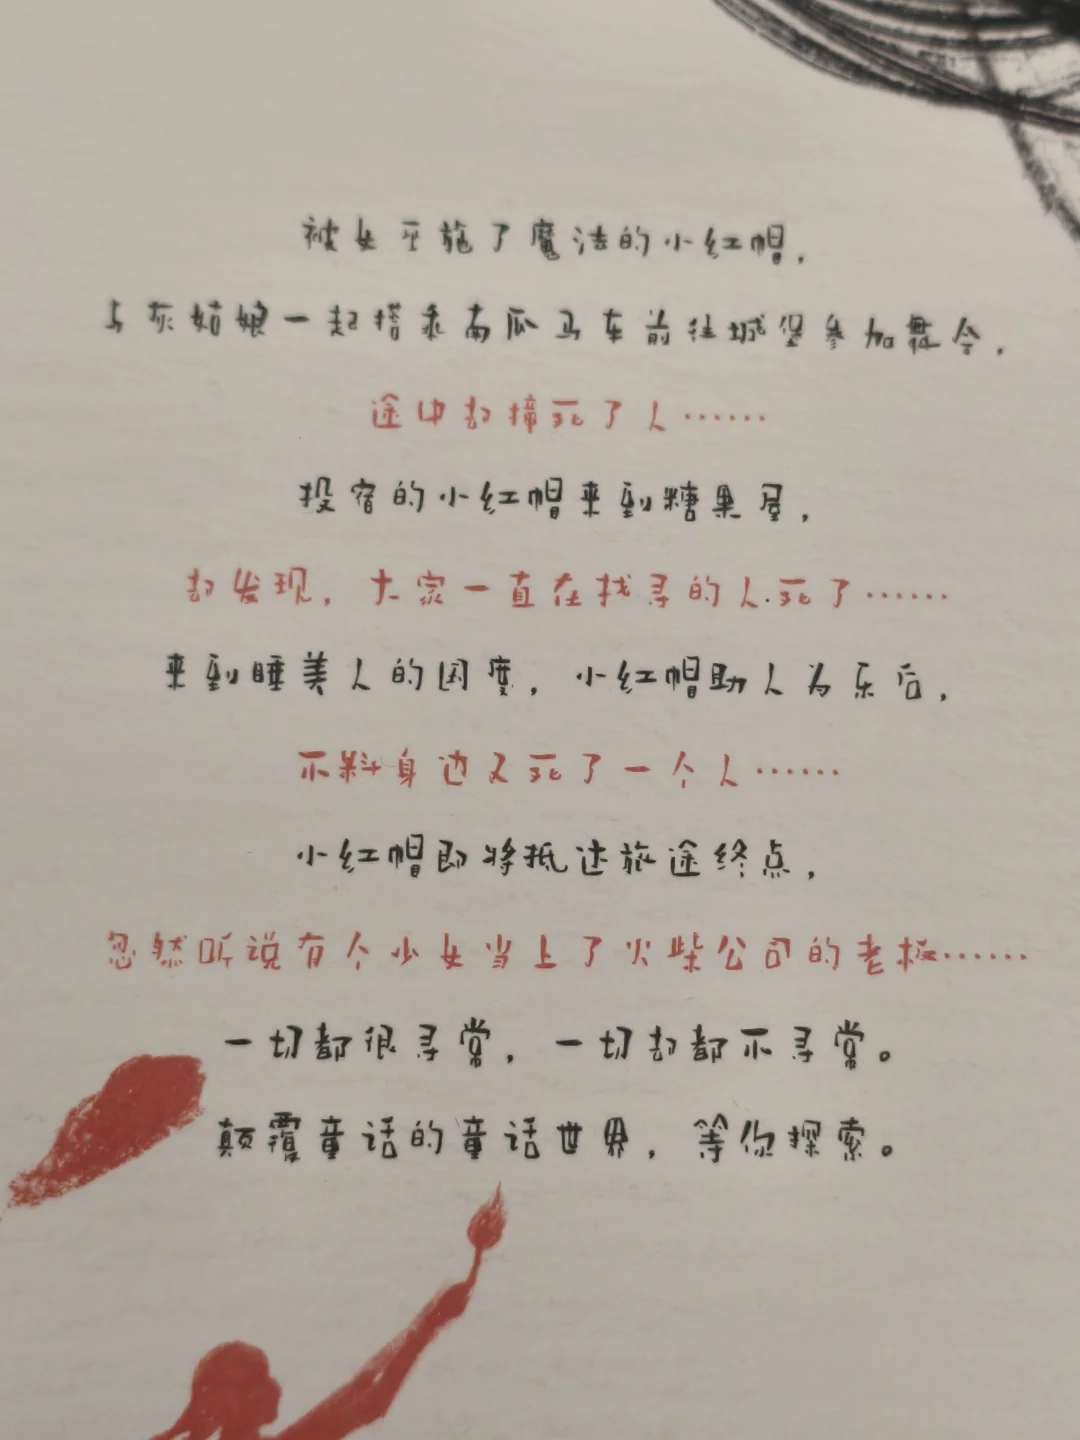 被女巫施了魔法的小红帽，
与灰姑娘一起搭乘南瓜马车前往城堡参加舞会，
途中却撞死了人……
投宿的小红帽来到糖果屋，
却发现，大家一直在找寻的人死了……
来到睡美人的国度，小红帽助人为乐后，
不料身边又死了一个人……
小红帽即将抵达旅途终点，
忽然听说有个少女当上了火柴公司的老板……
一切都很寻常，一切却都不寻常。
颠覆童话的童话世界，等你探索。